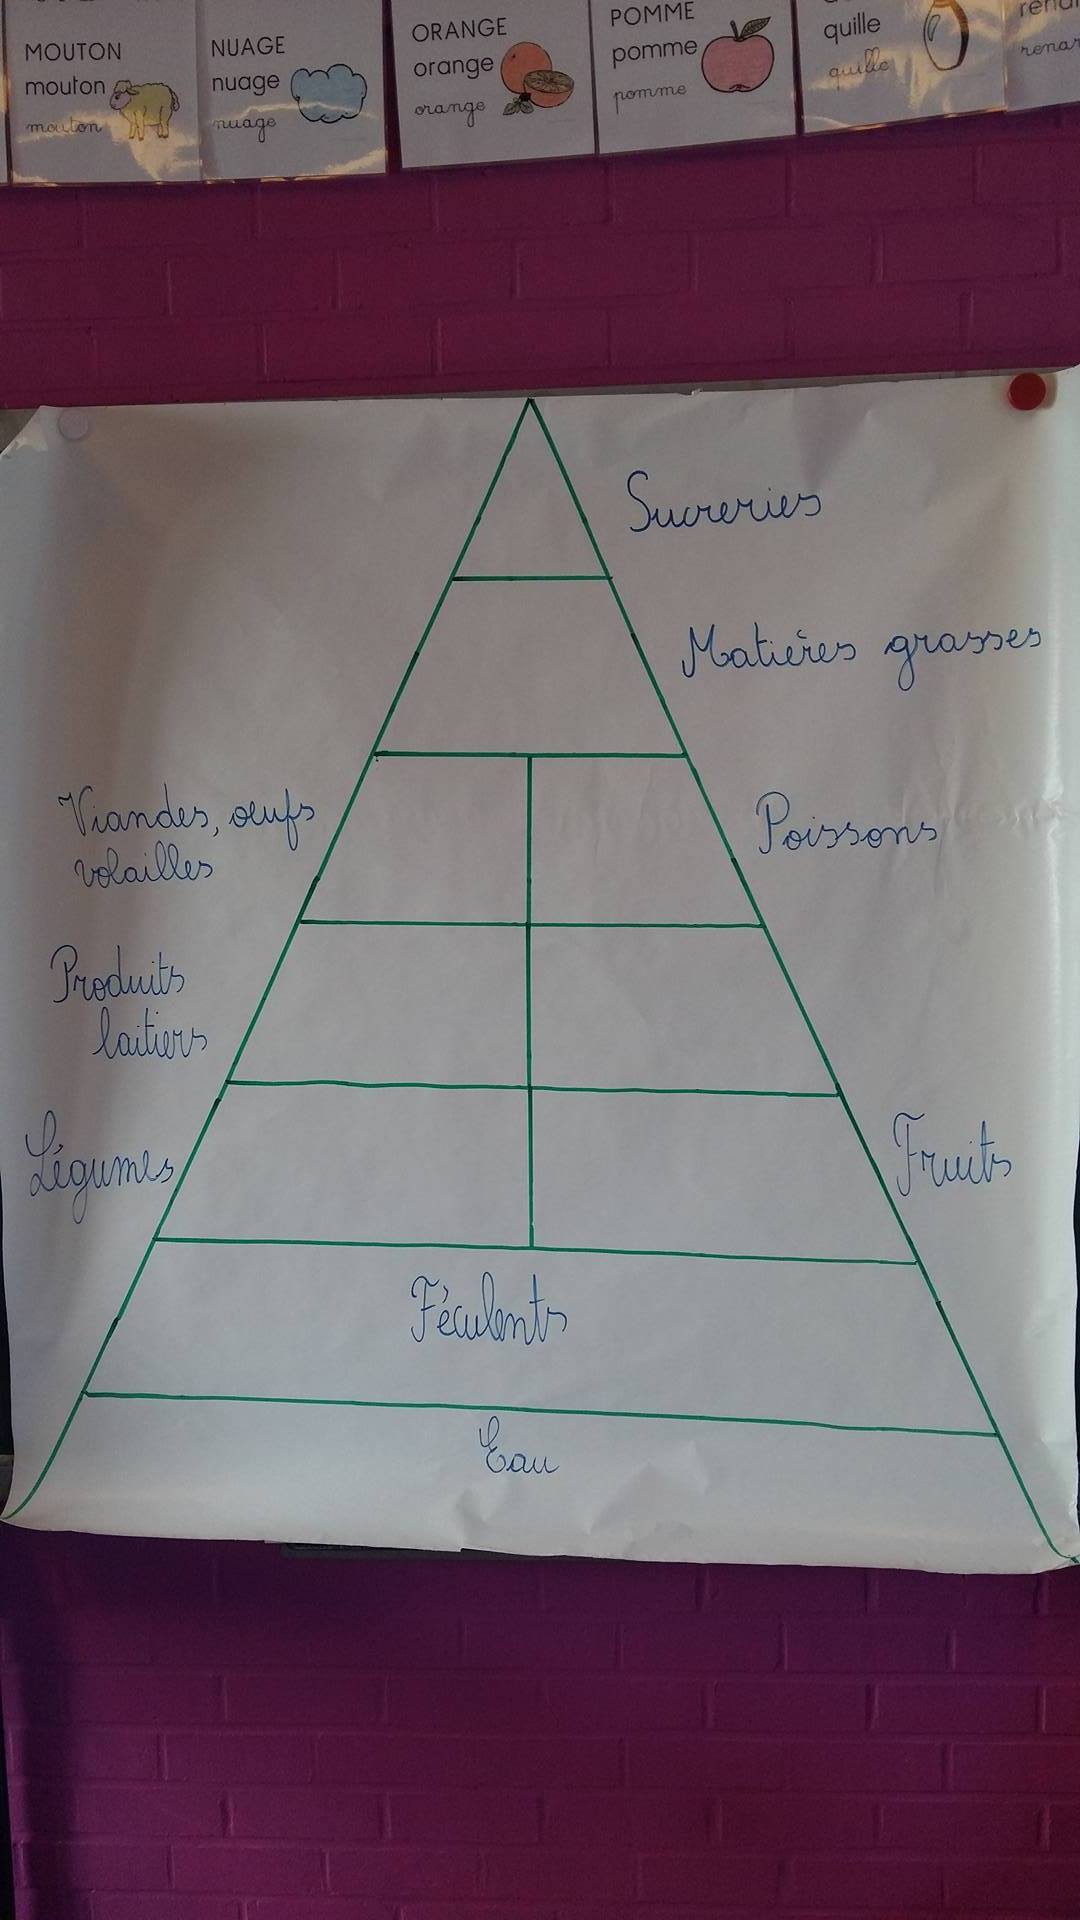 MOUTON
mouton
mouton
NUAGE
nuage
nuage
ORANGE
orange
orange
POMME
pomme
pomme
quille
quille
Sucreries
Matières grasses
Viandes, œufs
volailles
Poissons
Produits
laitiers
Légumes
Fruits
Féculents
Eau